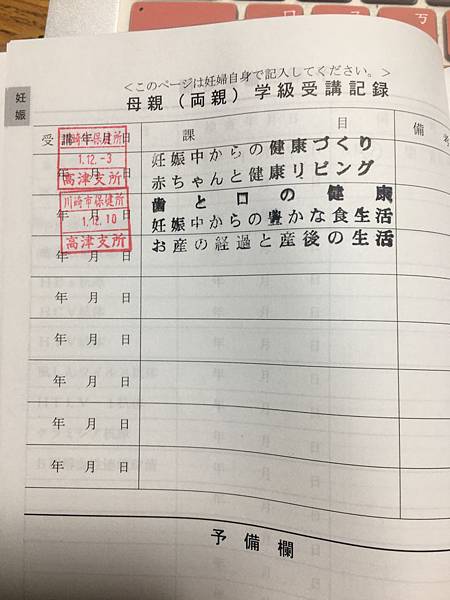 ㄗ
ㄅ
＜このページは妊婦自身で記入してください。＞
母親（両親）学級受講記録
妊娠
受講年月日
課目
備考
川崎市保健所
1.12.-3
高津支所
川崎市保健所
1.12.10
高津支所
妊娠中からの健康づくり
赤ちゃんと健康リビング
歯と口の健康
妊娠中からの豊かな食生活
お産の経過と産後の生活
年月日
年月日
年月日
年月日
年月日
年月日
年月日
年月日
予備欄